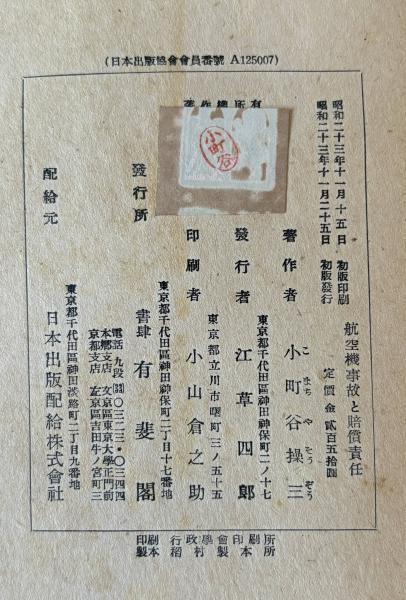 （日本出版協會會員番號 A125007）
著作權所有
小町谷
昭和二十三年十一月十五日 初版印刷
昭和二十三年十一月二十五日 初版發行
航空機事故と賠償責任
定價金 貳百五拾圓
著作者 小町谷操三
こまちやそうぞう
東京都千代田區神田神保町二ノ十七
發行者 江草四郎
東京都立川市曙町三ノ五十五
印刷者 小山倉之助
東京都千代田區神田神保町二丁目十七番地
發行所 書肆 有斐閣
電話 九段(33)〇三二三・〇三四四
本鄕支店 文京區東京大學正門前
京都支店 左京區吉田牛ノ宮町三
東京都千代田區神田淡路町二丁目九番地
配給元 日本出版配給株式會社
印刷 行政學會印刷所
製本 稻村製本所